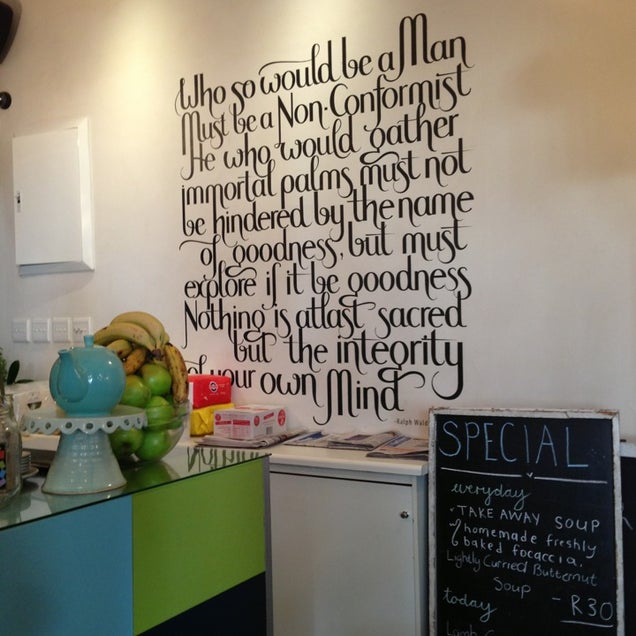 Who so would be a Man
Must be a Non-Conformist
He who would gather
immortal palms must not
be hindered by the name
of goodness, but must
explore if it be goodness
Nothing is at last sacred
but the integrity
of your own Mind
-Ralph Wald
SPECIAL
everyday
TAKE AWAY SOUP
homemade freshly
baked focaccia.
Lightly Curried Butternut
Soup - R30
today